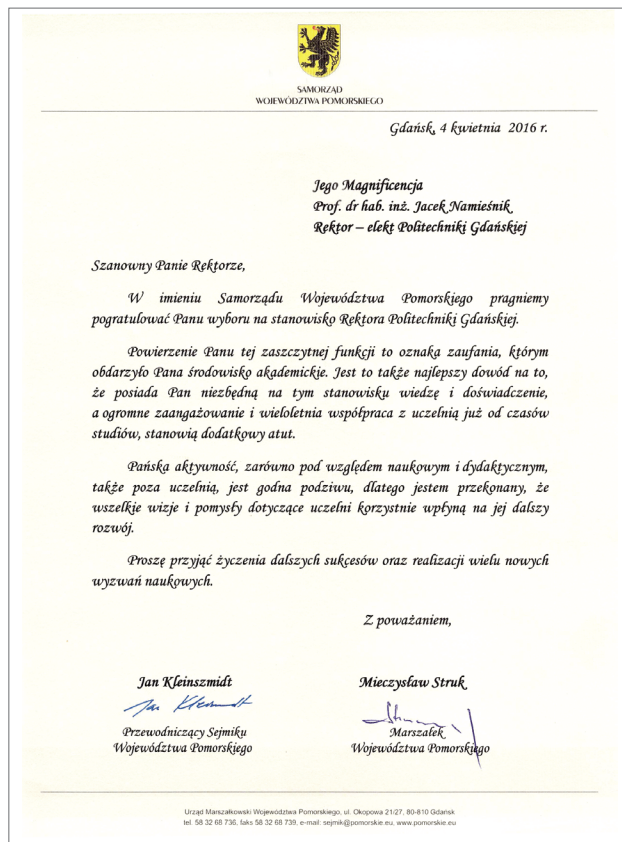 SAMORZĄD
WOJEWÓDZTWA POMORSKIEGO
Gdańsk, 4 kwietnia 2016 r.
Jego Magnificencja
Prof. dr hab. inż. Jacek Namieśnik
Rektor – elekt Politechniki Gdańskiej
Szanowny Panie Rektorze,
W imieniu Samorządu Województwa Pomorskiego pragniemy
pogratulować Panu wyboru na stanowisko Rektora Politechniki Gdańskiej.
Powierzenie Panu tej zaszczytnej funkcji to oznaka zaufania, którym
obdarzyło Pana środowisko akademickie. Jest to także najlepszy dowód na to,
że posiada Pan niezbędną na tym stanowisku wiedzę i doświadczenie,
a ogromne zaangażowanie i wieloletnia współpraca z uczelnią już od czasów
studiów, stanowią dodatkowy atut.
Pańska aktywność, zarówno pod względem naukowym i dydaktycznym,
także poza uczelnią, jest godna podziwu, dlatego jestem przekonany, że
wszelkie wizje i pomysły dotyczące uczelni korzystnie wpłyną na jej dalszy
rozwój.
Proszę przyjąć życzenia dalszych sukcesów oraz realizacji wielu nowych
wyzwań naukowych.
Z poważaniem,
Jan Kleinszmidt
Mieczysław Struk
Przewodniczący Sejmiku
Województwa Pomorskiego
Marszałek
Województwa Pomorskiego
Urząd Marszałkowski Województwa Pomorskiego, ul. Okopowa 21/27, 80-810 Gdańsk
tel. 58 32 68 736, faks 58 32 68 739, e-mail: sejmik@pomorskie.eu, www.pomorskie.eu